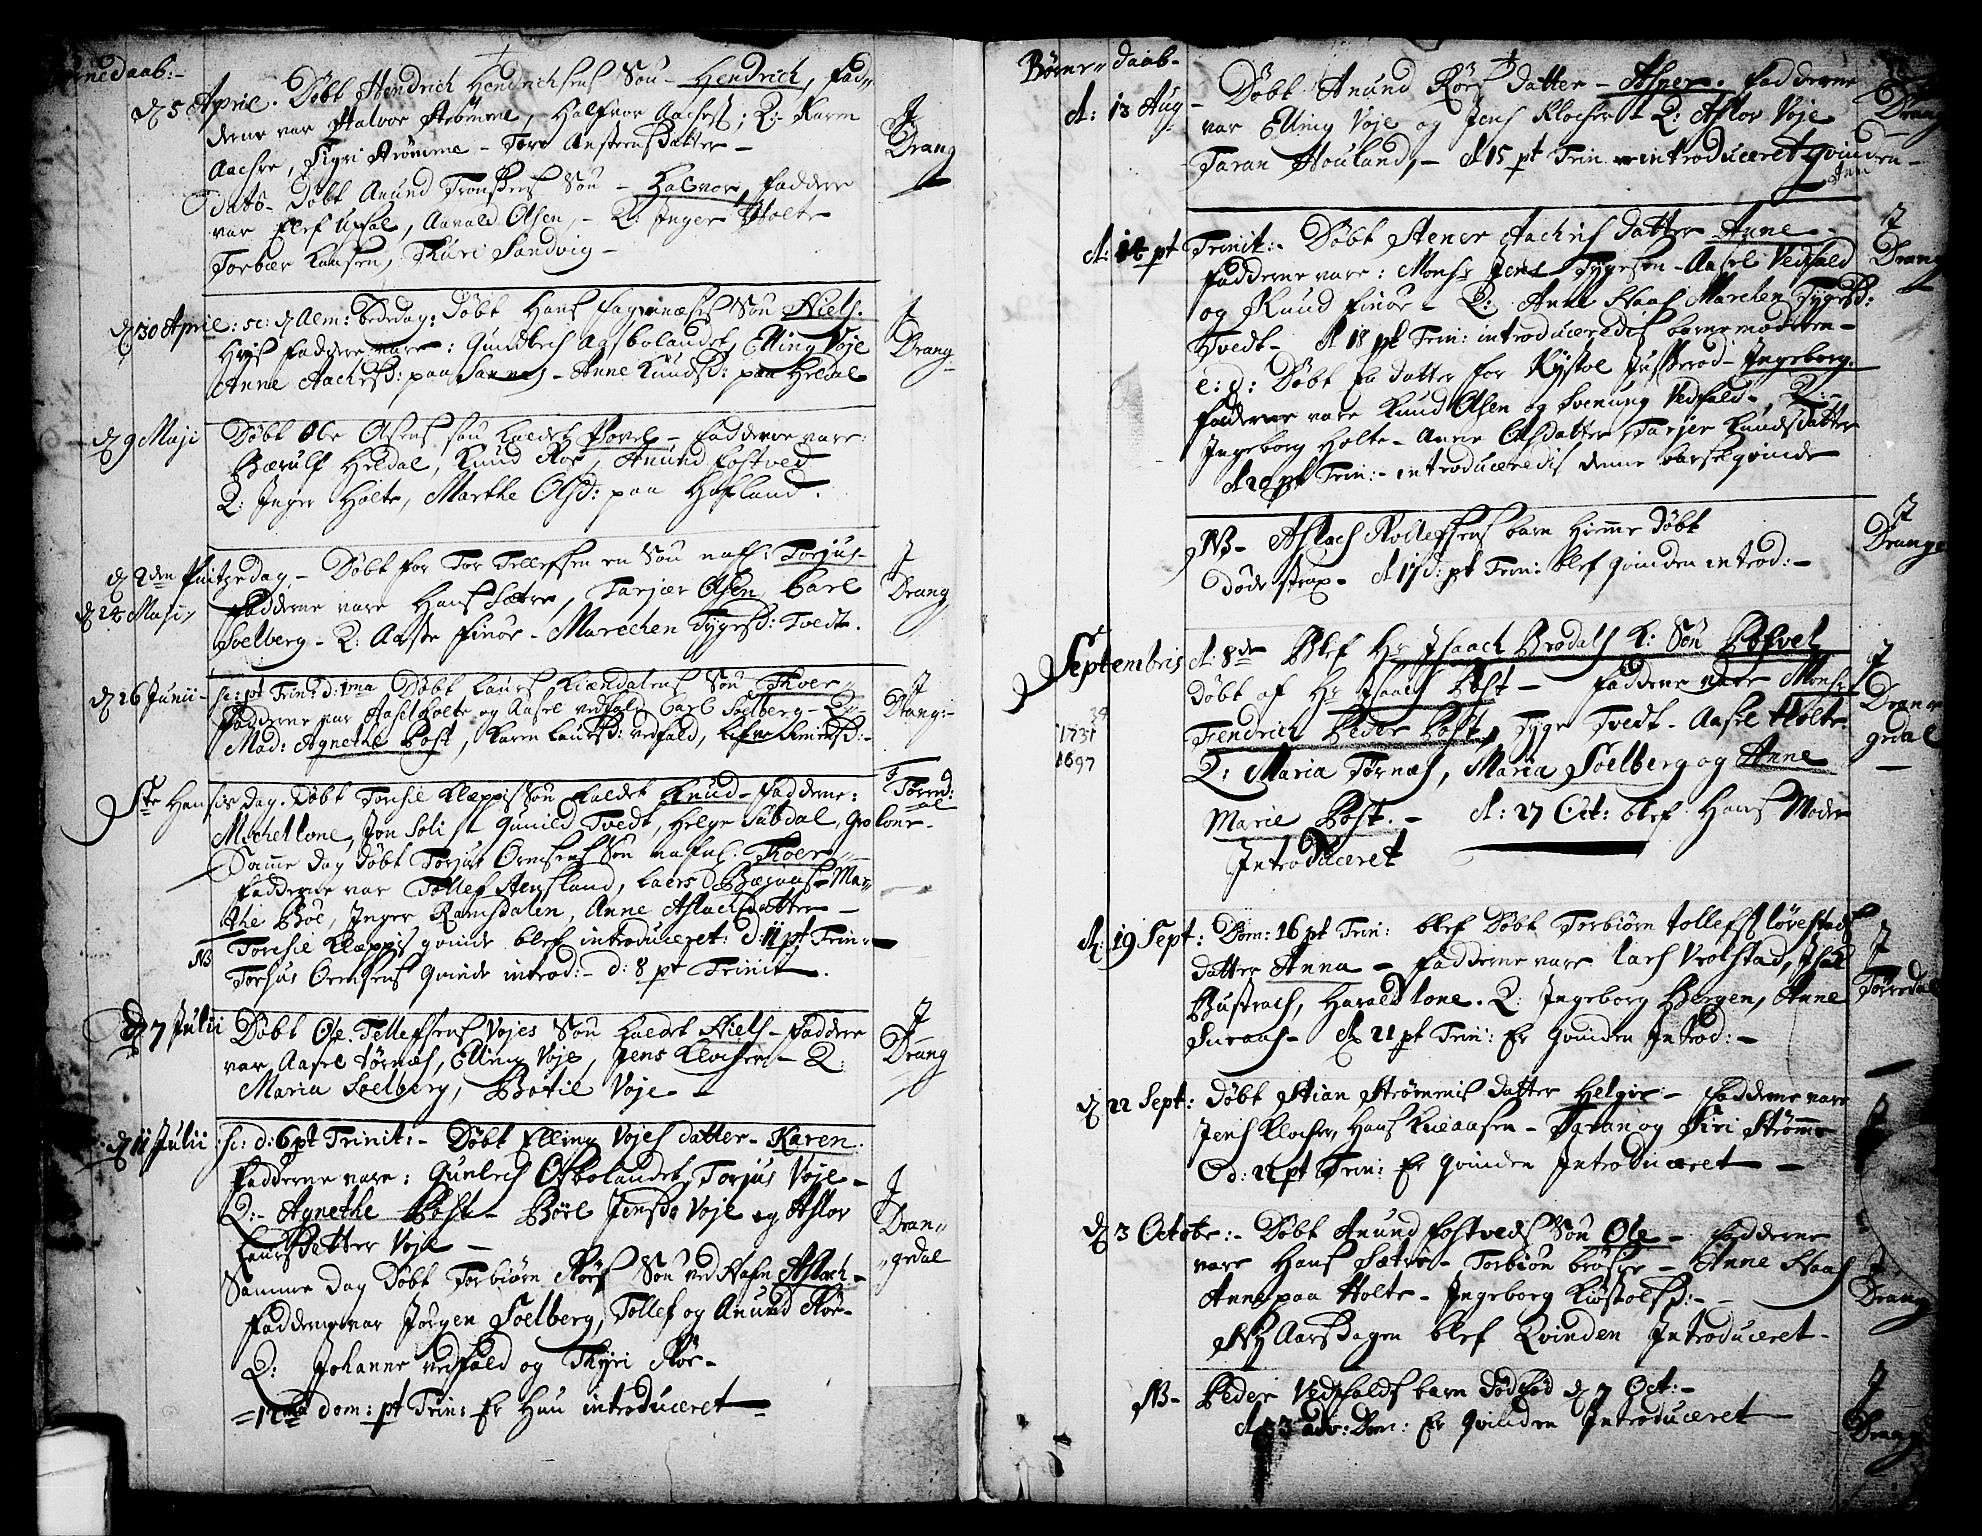 Børnedaab:-
d 5 April. Døbt Hendrich Hendrichsens Søn - Hendrich, fad-
derne var Halvor Strømme, Halfvor Aaches; Q: Karen
Aachre, Sigri Strømme - Tore Anstensdatter -
dito - Døbt Anund Tronsens Søn - Halvor, faddere
var Elef Upsal, Aavald Olsen, - Q: Inger Holte
Torbær Kaasen, Thuri Sandvig -
J
Drang
d 30 April: sc: d Alm: bededag: døbt Hans Fagernæsis Søn Niels.
Hvis faddere vare: Gundlech Aasbolandet, Elling Voje
Anne Aachesd: paa Sannes - Anne Knudsd: paa Heldal
J
Drang
d 9 Maji Døbt Ole Olsens søn kaldet Povel - fadderne vare:
Bærulf Heldal, Knud Roe, Anund Fostved
Q: Inger Holte, Marthe Olsd: paa Hofland.
d 2den Pintzedag, - Døbt for Tor Tellefsen en Søn nafl: Torjus
d 24 Maji, Fadderne vare Hans Sætre, Tarjær Olsen, Carl
Soelberg - Q: Aasse Finøe - Marechen Tygesd: Tvedt.
J
Drang
d 26 Junii - sc: pt Trin: d: 1ma Døbt Laurs Kiændalens Søn Thoer
Fadderne var Aasel Holte og Aasel vedfald Carl Soelberg - Q:
Mad: Agnethe Post, Karen Laursd: vedfald,
J
Drang:-
Ste Hansis dag. Døbt Torchil Klæppis Søn kaldet Knud - fadderne:
Mechel Lone, Jon Soli - Gunild Tvedt, Helge Subdal, Gro Lone -
J
Tørred:
al
Samme dag døbt Torjus Ormsens Søn nafnl. Thoer -
Fadderne var Tollef Stensland, Laers Bæraas - Mar-
the Bøe, Inger Ramsdalen, Anne Aslachsdatter -
NB Torchil Klæppis qvinde blef introduceret: d: 11 pt Trin: -
Torjus Ormsens qvinde introd: - d: 8 pt Trinit.
d 7 Julii Døbt Ole Tellefsens Vojes Søn kaldet Niels - Faddere
var Aasel Tørnæs, Elling Voje, Jens Klocher - Q:
Maria Soelberg, Botil Voje -
J
Drang
d 11 Julii: sc: d: 6 pt Trinit: - Døbt Elling Vojes datter - Karen.
Fadderne vare: Gunlech Osbolandet, Torjus Voje -
Q: - Agnethe Post - Børl Jensd: Voje og Aslov
Laursdatter Voje -
J
Dran-
gedal
Samme dag Døbt Torbiørn Roes Søn ved Nafn Aslach -
Fadderne var Jørgen Soelberg, Tollef og Anund Roe -
Q: Johanne vedfald og Thyri Roe -
= 12te dom: pt Trin: Er Hun introduceret -
Børne daab-
d: 13 Aug - Døbt Anund Roes datter - Asper. Fadderne
var Elling Voje og Jens Klocher - Q: Aslov Voje
Taran Houland, - d 15 pt Trin introduceret qvinden -
J
Drang
d: 14 pt Trinit: - Døbt Stener Aachris datter Anne -
fadderne vare: Monsr Jens Tygesen - Aasel Vedfald
og Knud Finøe - Q: Anne Haas Marchen Tygesd:
Tvedt - d 18 pt Trin: introduceredis barnemoderen -
J
Drang
e: d: Døbt En datter for Kystol Jusserod - Ingeborg.
fadderne vare Knud Olsen og Svenung Vedfald -, Q: -
Ingeborg Holte - Anne Olsdatter, Tarjer Knudsdatter
d 20 pt Trin: - introduceredis denne barselqvinde
NB - Aslach Rollefsens barn hiemme døbt
døde strax - d 17 d: pt Trin: blef qvinden introd: -
J
Drange
Septembris d: 8de Blef Hr Isaach Brødals K: Søn Pofvel
døbt af Hr Isaach Post - Fadderne vare Monsr
Fendrich Peder Post, Tyge Tvedt - Aasel Holte
Q: Maria Tørnæs, Maria Soelberg og Anne
Marie Post. - d: 27 Oct: blef Hans Moder
Introduceret
1731
1697
J
Dran-
gedal
d: 19 Sept: Dom: 16 pt Trin: blef Døbt Torbiørn Tollefs Løvestads
datter Anna - fadderne vare Lars Vrolstad, Isac
Bustrach, Harald Lone. Q: Ingeborg Bergen, Anne
Suraas - d 21 pt Trin: Er qvinden Introd: -
J
Tørredal
d 22 Sept: Døbt Stian Strømmis datter Helgie - Fadderne vare
Jens Klocher, Hans Kieaasen - Taran og Siri Strømme
Od: 21 pt Trin: Er qvinden Introduceret -
d 3 Octobr: - Døbt Anund Fostveds Søn Ole - Fadderne
vare Hans Sætre - Torbiøn brøster - Anne Haas
Anne paa Holte - Ingeborg Kiøstolsd: -
Ny Aarsdagen blef Qvinden Introduceret -
J
Drang
NB - Peder Vedfalds barn dødfød d 7 Oct: -
d 3 adv: Dom: Er qvinden Introduceret
J
Drang